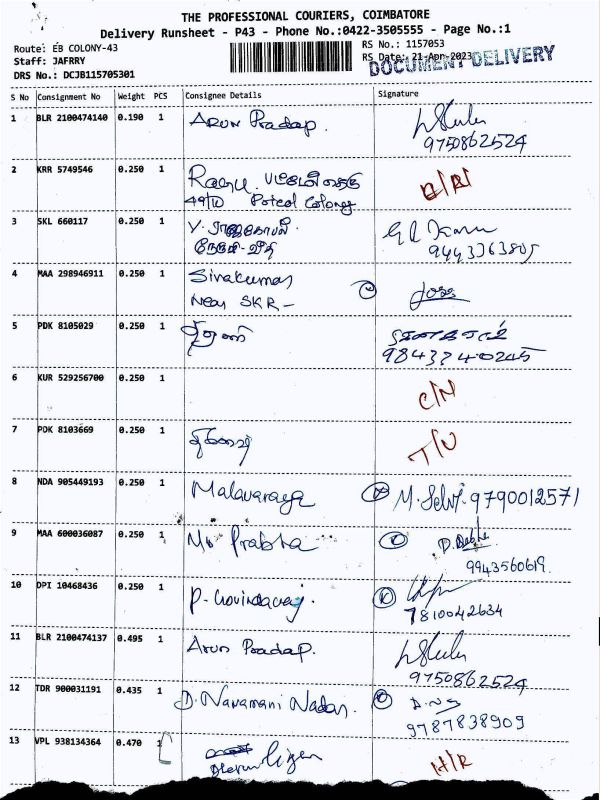 THE PROFESSIONAL COURIERS, COIMBATORE
Delivery Runsheet - P43 - Phone No.:0422-3505555 - Page No.:1
Route: EB COLONY-43
RS No.: 1157053
Staff: JAFRRY
RS Date: 21-Apr-2023
DOCUMENT DELIVERY
DRS No.: DCJB115705301
S No Consignment No Weight PCS Consignee Details Signature
1 BLR 2100474140 0.190 1 Arun Pradap.
9750862524
2 KRR 5749546 0.250 1 Ragu
49/10 Poted Colony
3 SKL 660117 0.250 1 V. ராஜகோபால்
நேருவீதி
9443363805
4 MAA 298946911 0.250 1 Sivakumar
Near SKR-
5 PDK 8105029 0.250 1
9843240245
6 KUR 529256700 0.250 1 C/N
7 PDK 8103669 0.250 1 T/U
8 NDA 905449193 0.250 1 Malavaraya M. Selvi 9790012571
9 MAA 600036087 0.250 1 Mr Prabha
9943560619.
10 DPI 10468436 0.250 1 P. Govindaraj.
7810042634
11 BLR 2100474137 0.495 1 Arun Pradap.
9750862524
12 TDR 900031191 0.435 1 D. Navamani Nadar. D. NS
9787838909
13 VPL 938134364 0.470 1 H/R